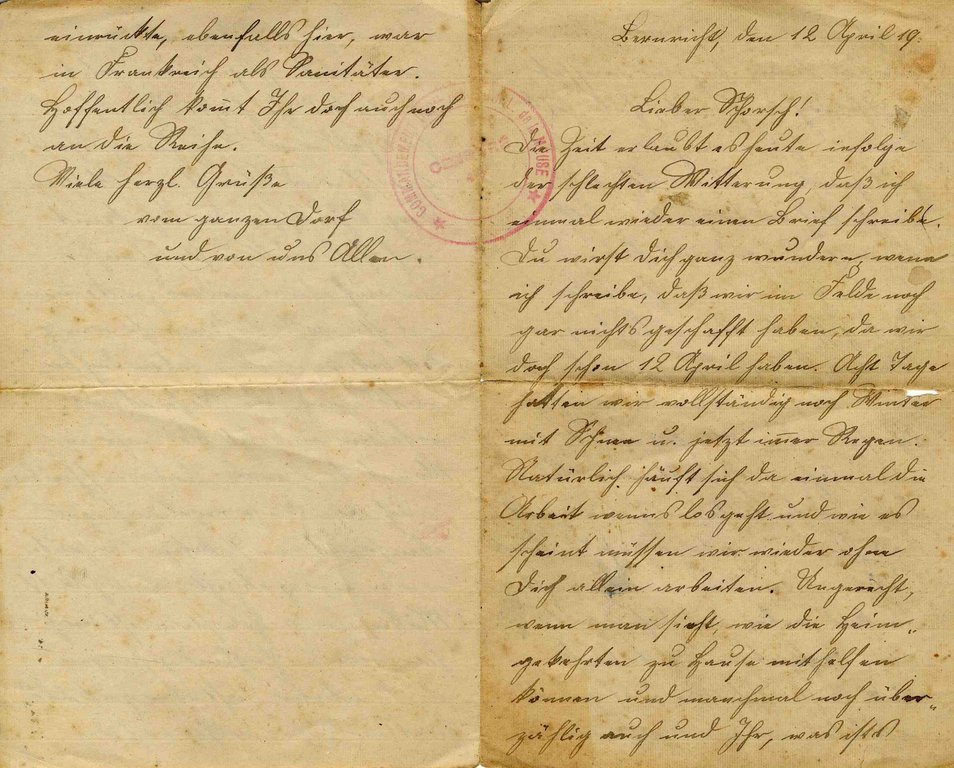 einrückte, ebenfalls hier, war
in Frankreich als Sanitäter.
Hoffentlich kom̅t Ihr doch auch noch
an die Reihe.
Viele herzl. Grüße
vom ganzen Dorf
und von uns Allen.
Bernricht, den 12 April 19.
Lieber Schorsch!
Die Zeit erlaubt es heute infolge
der schlechten Witterung, daß ich
einmal wieder einen Brief schreibe.
Du wirst Dich ganz wundern, wenn
ich schreibe, daß wir im Felde noch
gar nichts geschafft haben, da wir
doch schon 12 April haben. Acht Tage
hatten wir vollständig noch Winter
mit Schnee u. jetzt im̅er Regen.
Natürlich häuft sich da einmal die
Arbeit wenns losgeht und wie es
scheint müssen wir wieder ohne
Dich allein arbeiten. Ungerecht,
wenn man sieht, wie die Heim„
gekehrten zu Hause mithelfen
können und manchmal noch über„
zählig auch und Ihr, was ists